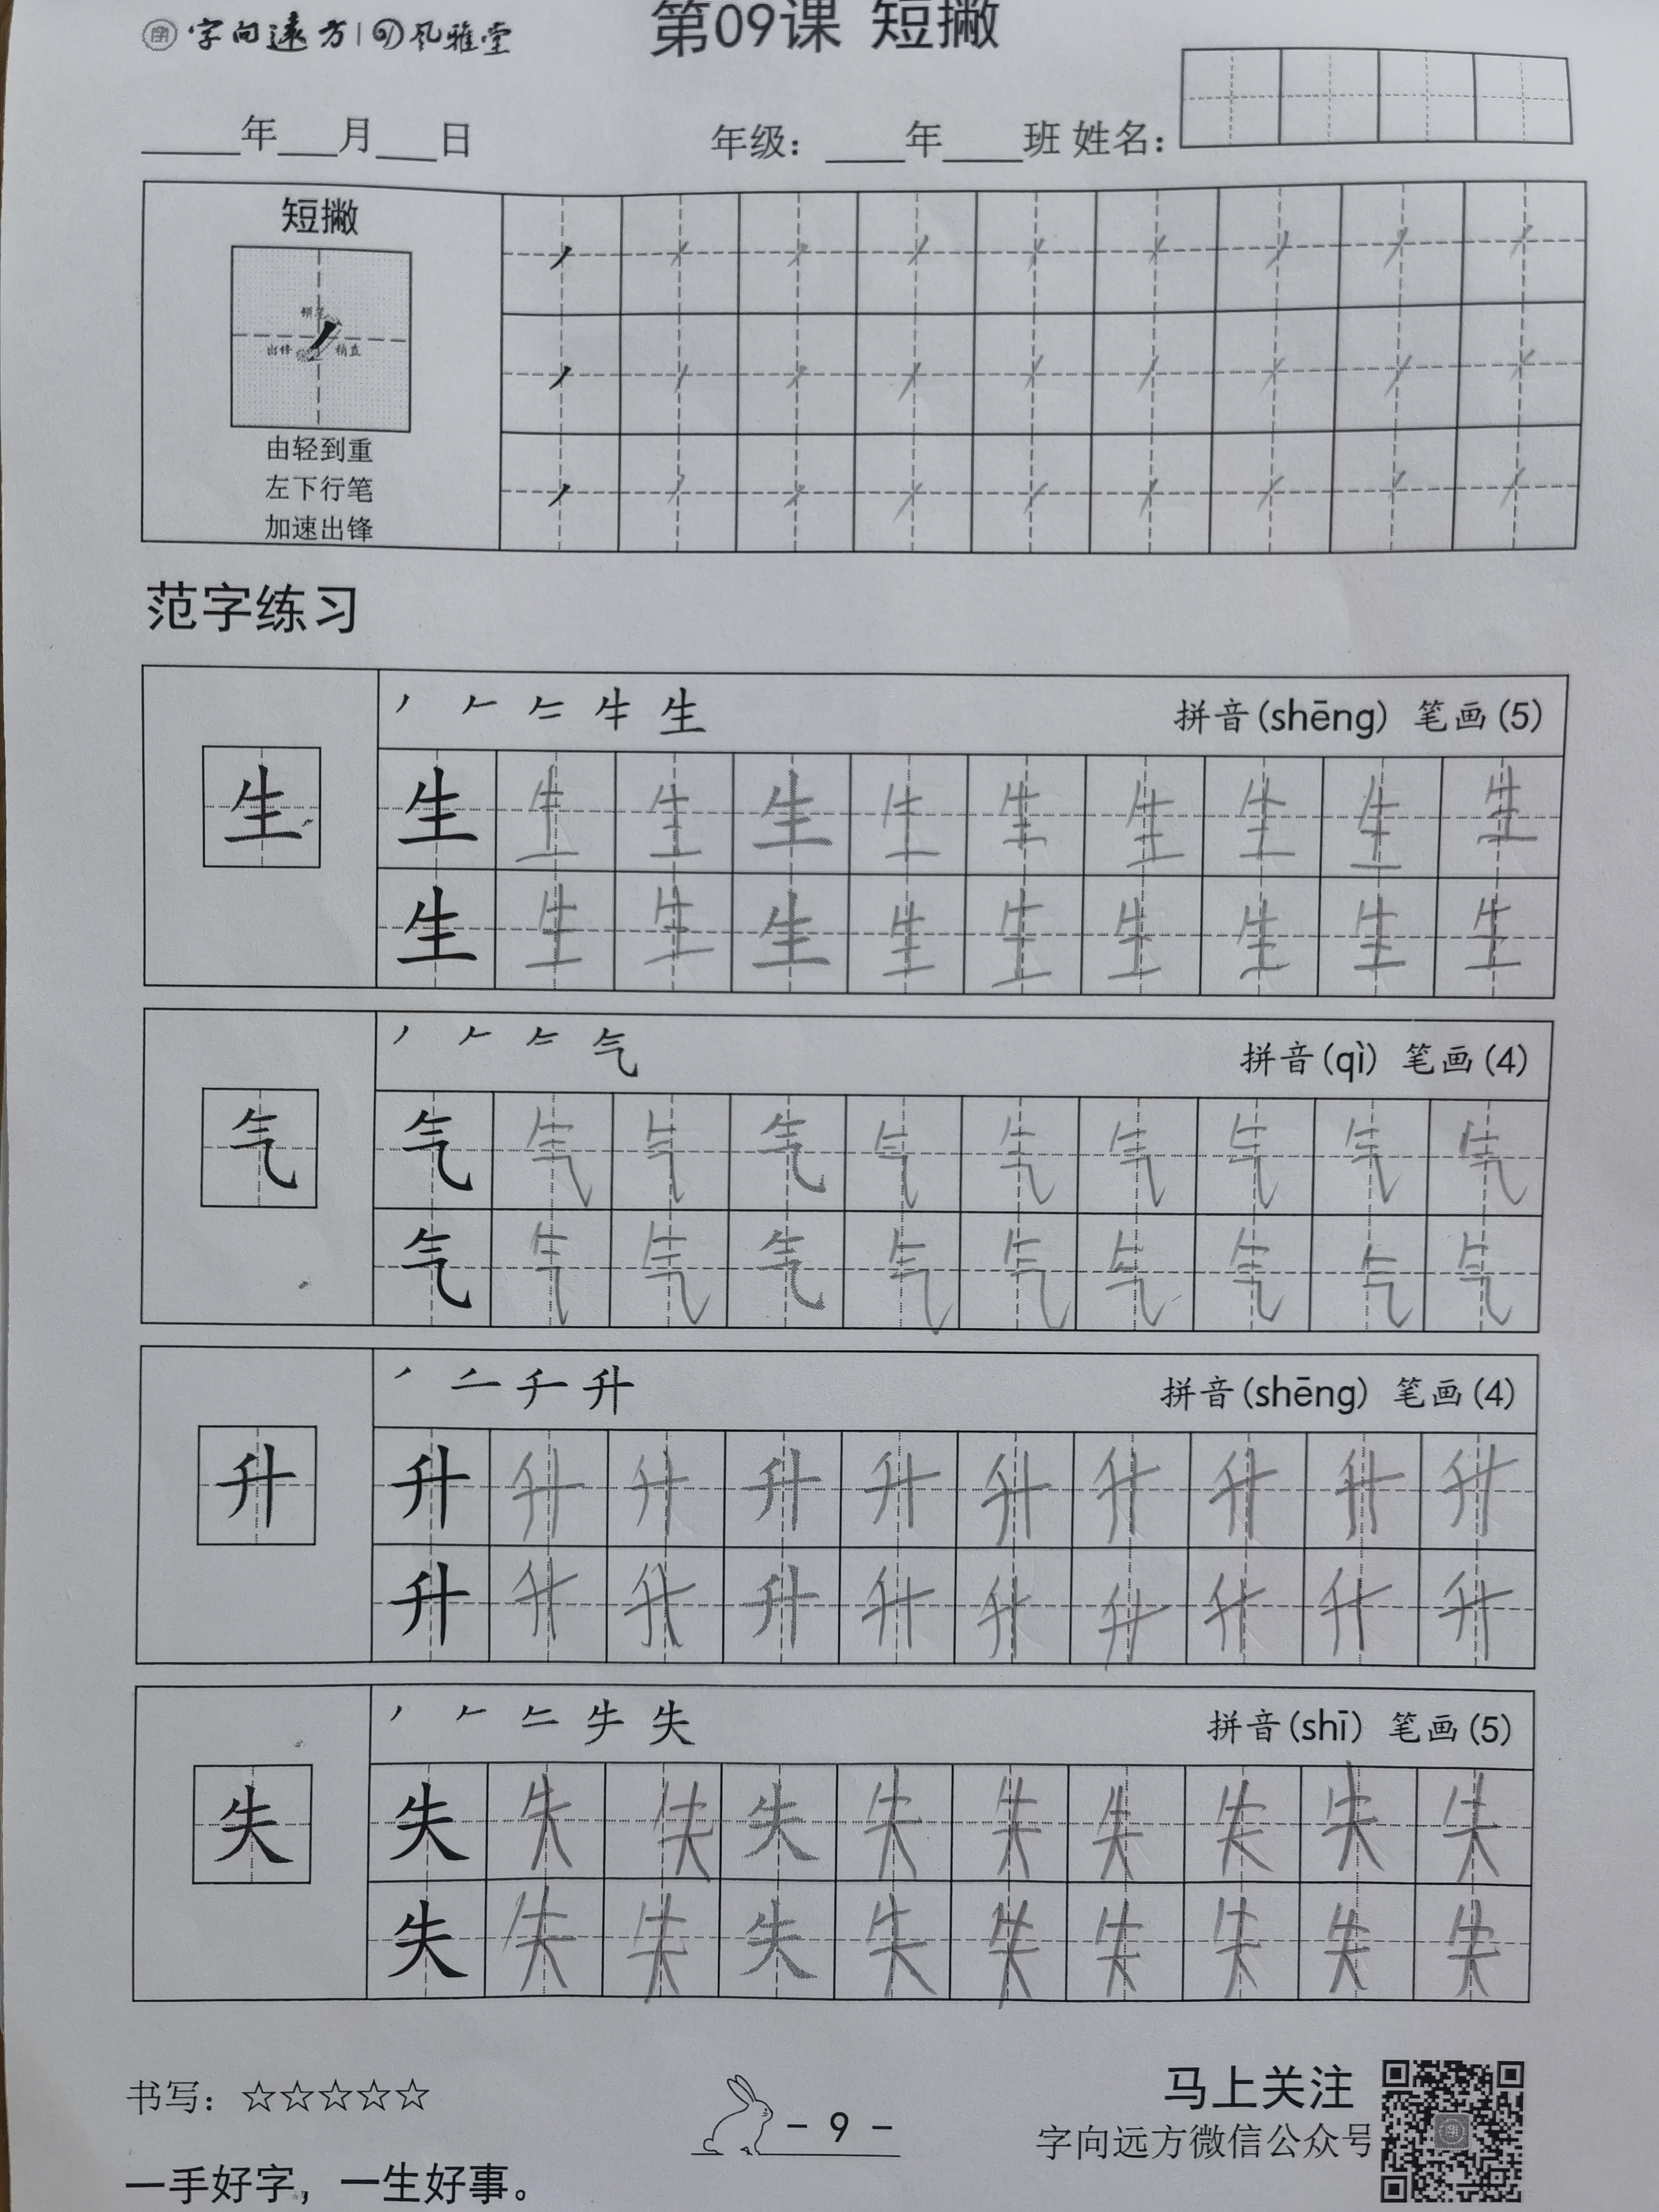 字向遠方 | 风雅堂
第09课 短撇
年 月 日 年级： 年 班 姓名：
短撇
出锋 稍直
由轻到重
左下行笔
加速出锋
范字练习
丿 𠂉 牛 生 拼音(shēng) 笔画(5)
生 生 生 生 生 生 生 生 生 生 生
生 生 生 生 生 生 生 生 生 生
丿 𠂉 气 拼音(qì) 笔画(4)
气 气 气 气 气 气 气 气 气 气 气
气 气 气 气 气 气 气 气 气 气
丿 升 拼音(shēng) 笔画(4)
升 升 升 升 升 升 升 升 升 升 升
升 升 升 升 升 升 升 升 升 升
丿 𠂉 失 拼音(shī) 笔画(5)
失 失 失 失 失 失 失 失 失 失 失
失 失 失 失 失 失 失 失 失 失
书写：☆☆☆☆☆
- 9 -
马上关注
字向远方微信公众号
一手好字，一生好事。